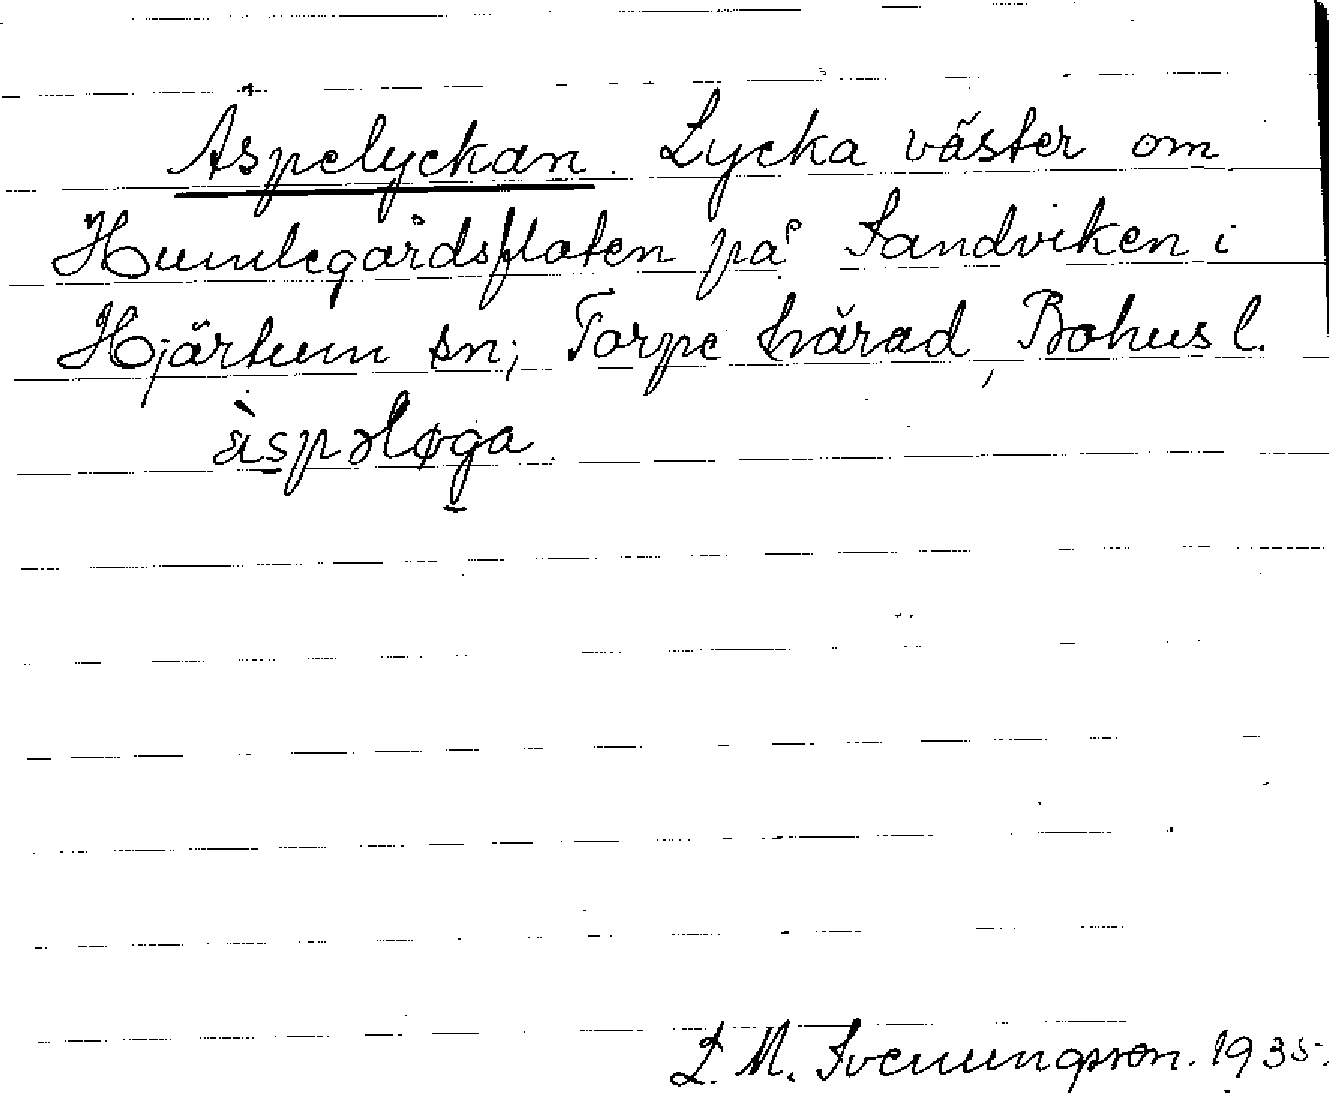 Äspelyckan. Lycka väster om
Humlegårdsflaten på Sandviken i
Hjärtum sn; Torpe härad, Bohusl.
äspəløga
L. M. Svenungsson. 1935.